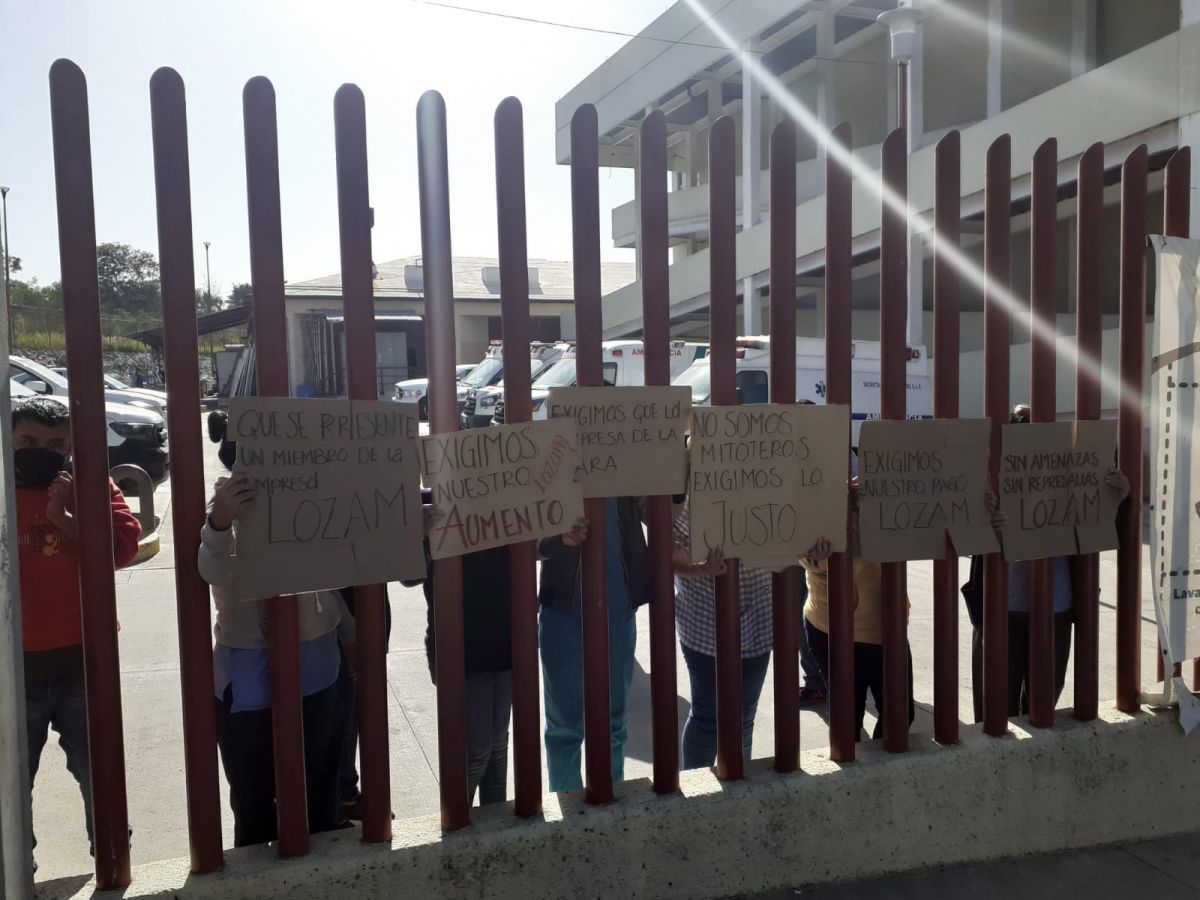 QUE SE PRESENTE
UN MIEMBRO DE LA
EMPRESA
LOZAM
EXIGIMOS
NUESTRO
AUMENTO
LOZAM
EXIGIMOS QUE LA
DE LA
CARA
NO SOMOS
MITOTEROS
EXIGIMOS LO
JUSTO
EXIGIMOS
NUESTRO PAGO
LOZAM
SIN AMENAZAS
SIN REPRESALIAS
LOZAM
AMBULANCIA
Lava